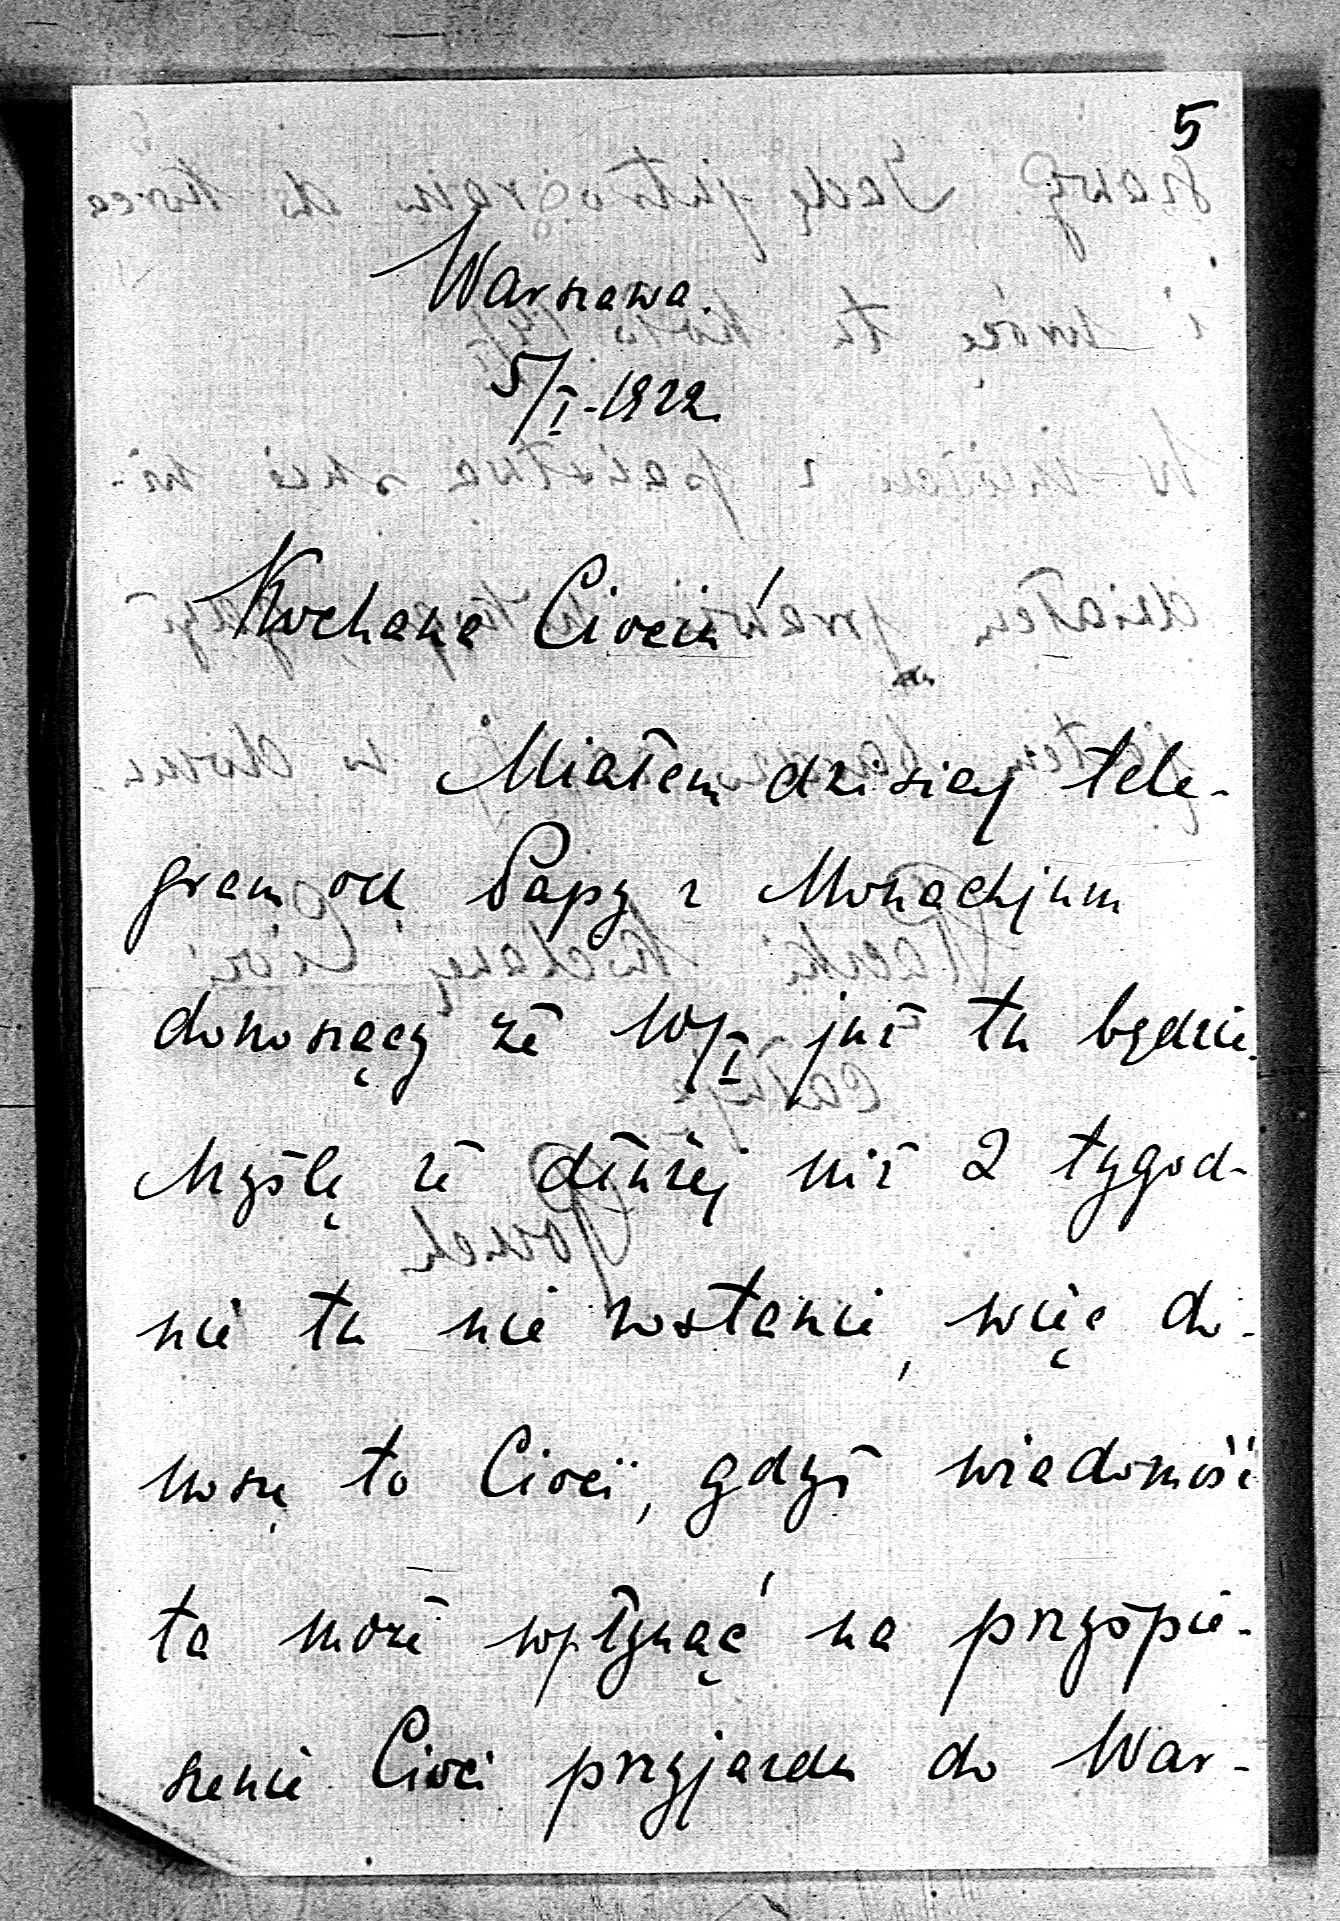 5
Warszawa
5/I-1922
Kochana Ciociu
Miałem dzisiaj tele-
gram od Papy z Monachjum
donoszący że 10/I już tu będzie.
Myślę że dłużej niż 2 tygod-
nie tu nie zostanie, więc do-
noszę to Cioci, gdyż wiadomość
ta może wpłynąć na przyśpie-
szenie Cioci przyjazdu do War-